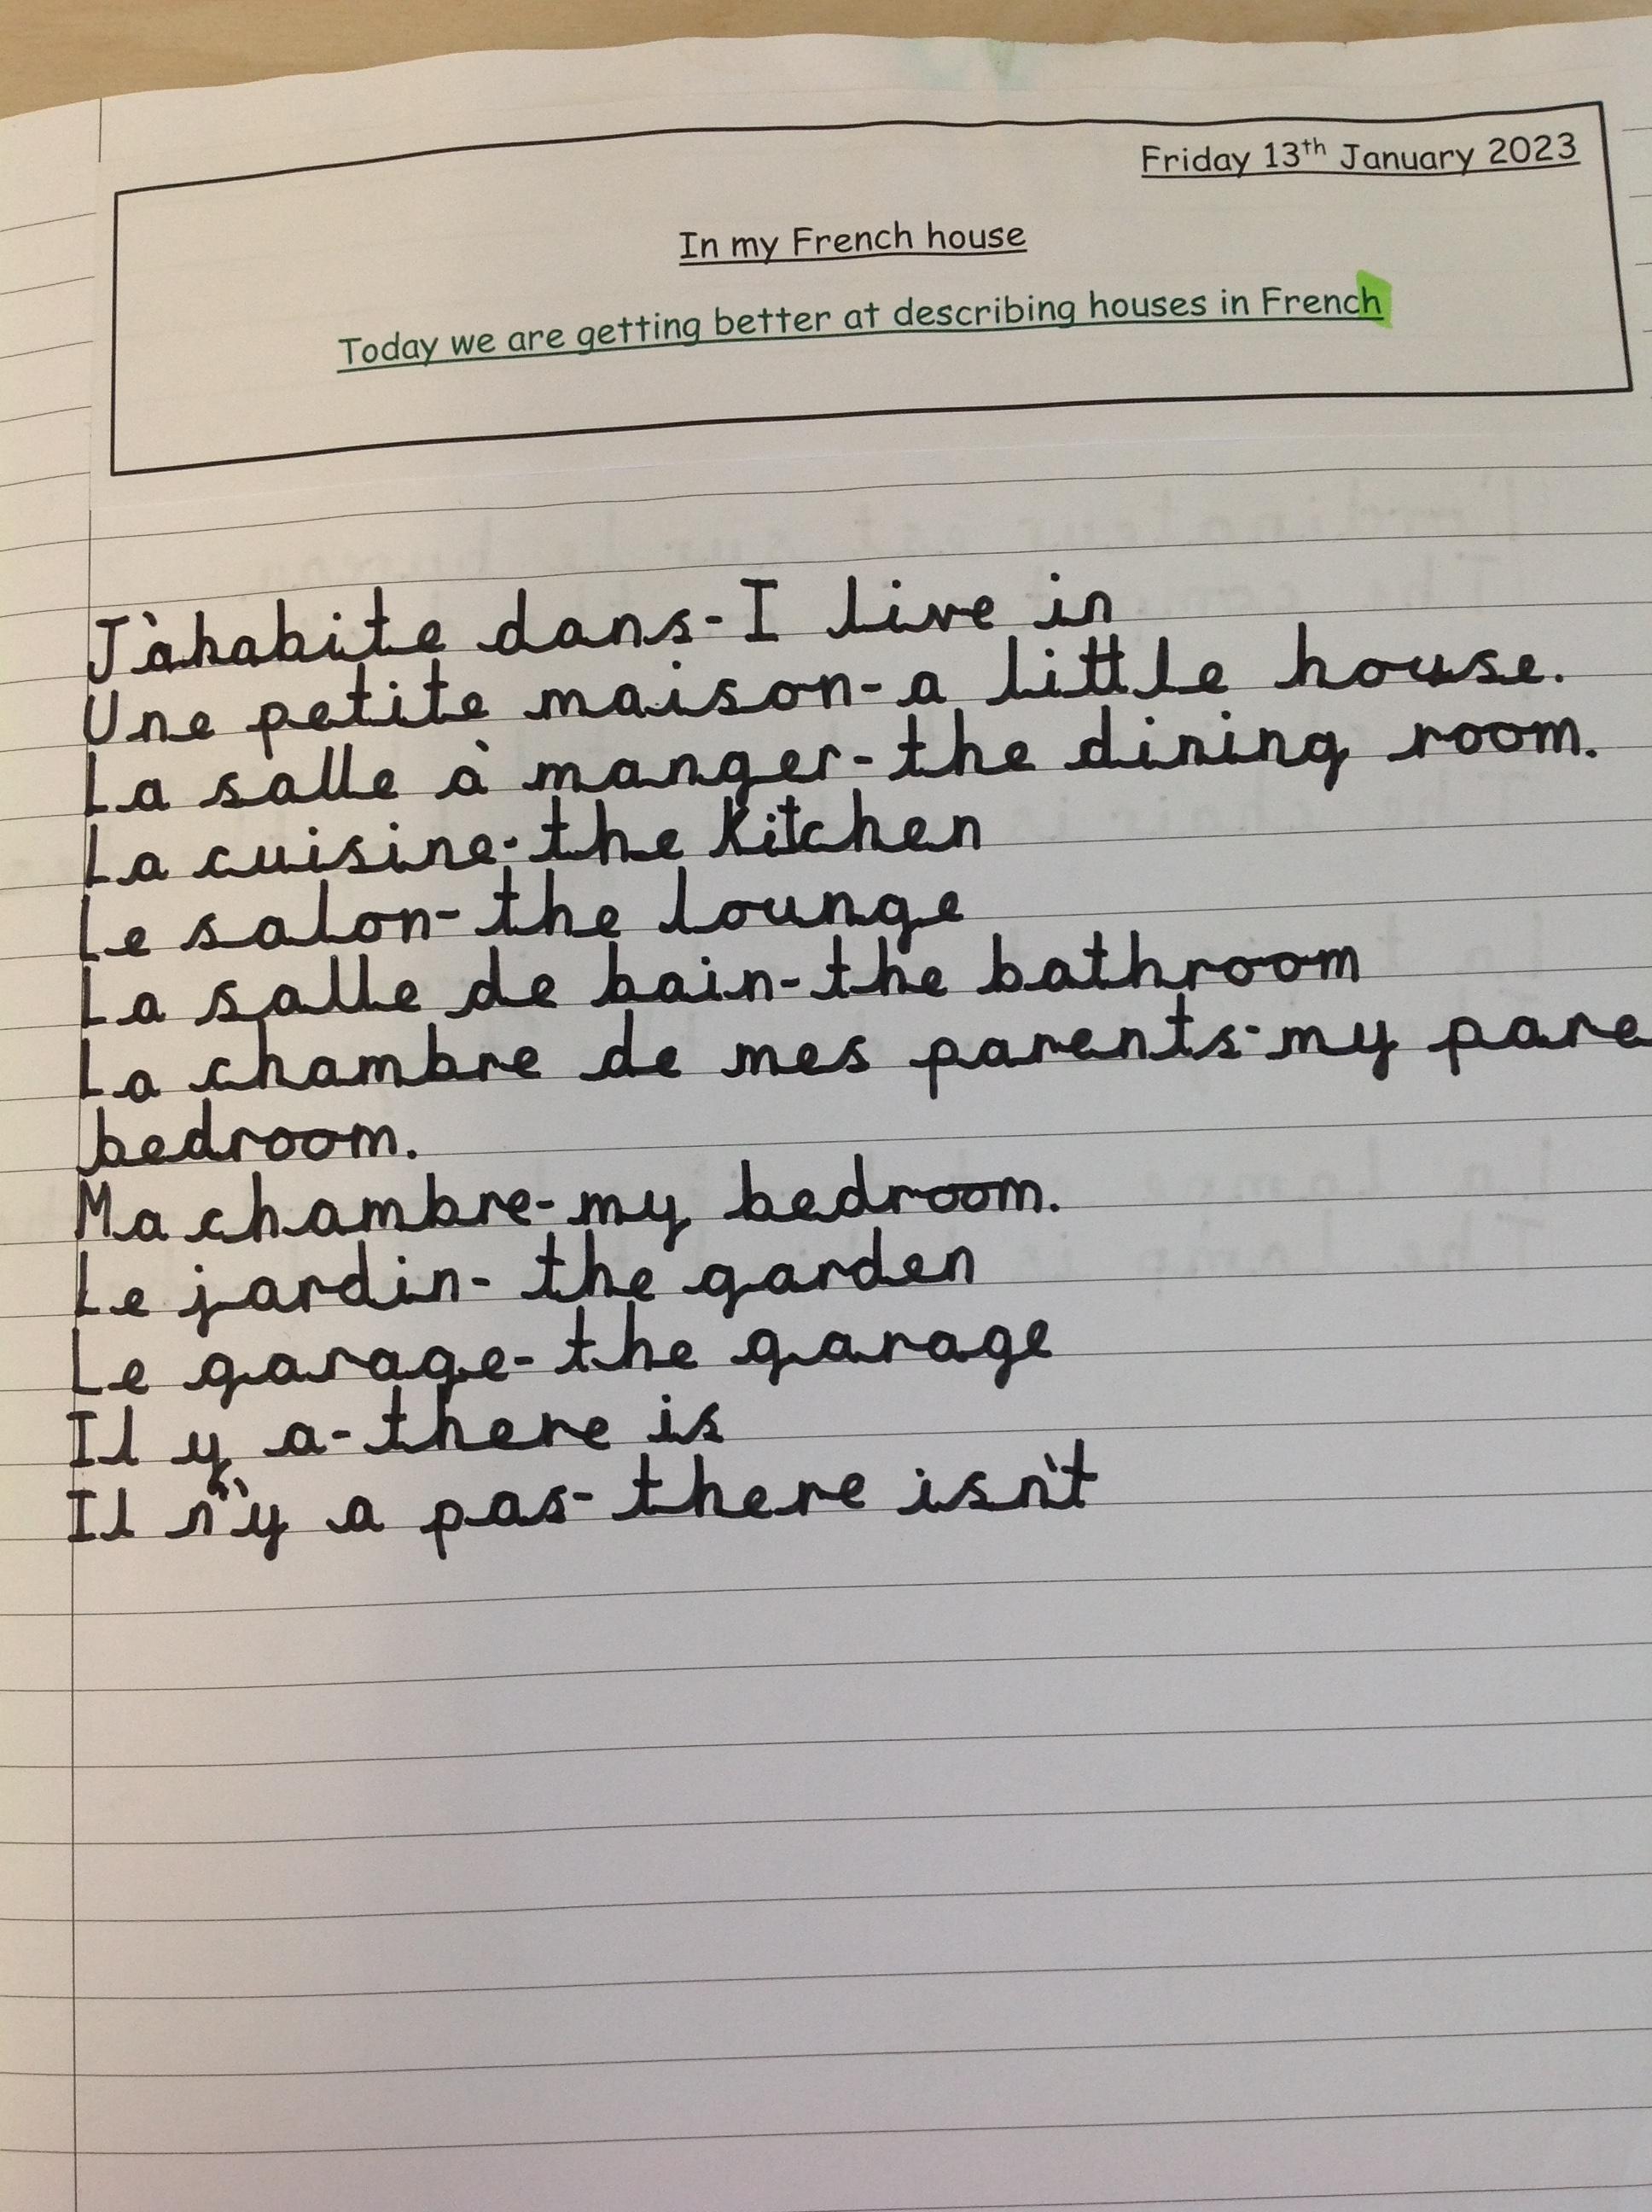 Friday 13th January 2023
In my French house
Today we are getting better at describing houses in French
J'àhabite dans-I live in
Une petite maison-a little house.
La salle à manger-the dining room.
La cuisine-the kitchen
Le salon-the lounge
La salle de bain-the bathroom
La chambre de mes parents-my pare
bedroom.
Ma chambre-my bedroom.
Le jardin-the garden
Le garage-the garage
Il y a-there is
Il n'y a pas-there isn't